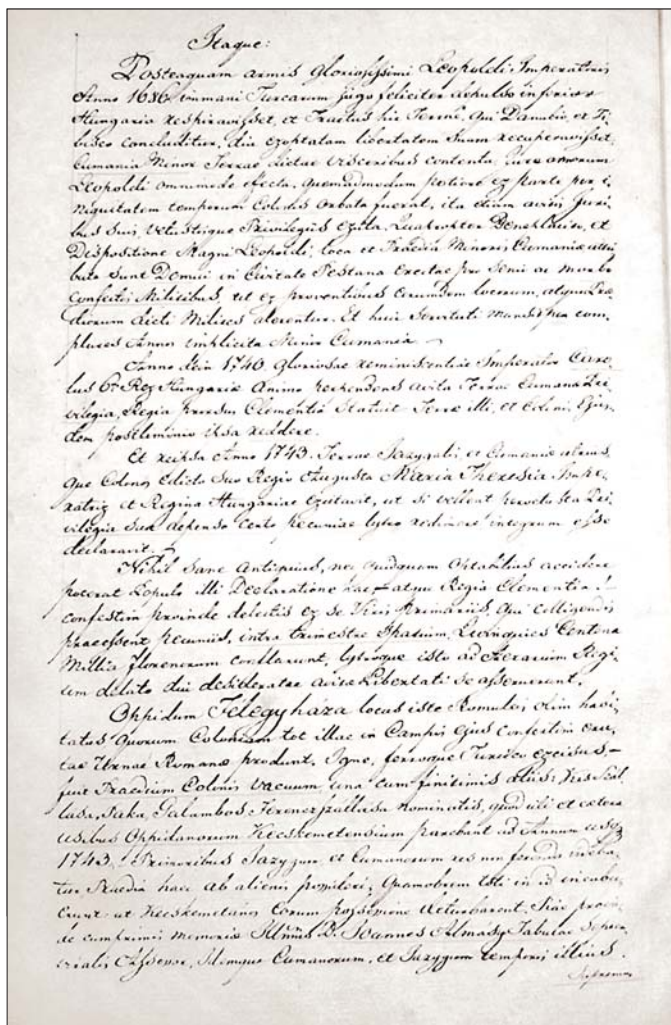 Itaque:
Posteaquam armis Gloriosissimi Leopoldi Imperatoris
Anno 1686 immani Turcarum jugo feliciter depulso inferior
Hungaria respiravisset, et Tractus hic Terrae, qui Danubio, et Ti-
bisco concluditur, diu exoptatam libertatem suam recuperavisset,
Cumania Minor Terrae dictae visceribus contenta, jure armorum
Leopoldi omnimode effecta, quemadmodum potiore ex parte per i-
niquitatem temporum Colonis orbata fuerat, ita etiam avitis Juri-
bus suis, vetustisque Privilegiis exuta. Quapropter Beneplacito, et
Dispositione Magni Leopoldi, loca et Praedia Minoris Cumaniae attri-
buta sunt Domui in Civitate Pestana erectae pro senio ac morbo
confectis Militibus, ut ex proventibus eorumdem locorum, atque Prae-
diorum dicti Milites alerentur. Et huic Servituti mansit per com-
plures Annos implicita Minor Cumania.
Anno dein 1740. Gloriosae reminiscentiae Imperator Caro-
lus 6. Rex Hungariae Animo perpendens avita Terrae Cumanae Pri-
vilegia, Regia prorsus Clementia Statuit Terrae illi, et Colonis Ejus-
dem postliminio ipsa reddere.
Et reipsa Anno 1743. Terrae Jazygalis et Cumaniae utrius-
que Colonos Edicto Suo Regio Augusta Maria Theresia Impe-
ratrix et Regina Hungariae Excitavit, ut si vellent pervetusta Pri-
vilegia Sua depenso certo pecuniae lytro redimere integrum esse
declaravit.
Nihil sane Antiquius, nec quidquam Optabilius accidere
poterat Populo illi Declaratione hac atque Regia Clementia!
confestim proinde delectis ex se Viris Primariis, qui colligendis
praeessent pecuniis, intra trimestre Spatium, Quinquies Centena
Millia florenorum conflarunt, lytroque isto ad Aerarium Regi-
um delato diu desideratae avitae Libertati se asseruerunt.
Oppidum Félegyháza locus iste Romulois olim habi-
tatus quorum Coloniam tot illac in Campis ejus confestim eru-
tae Urnae Romanae produnt. Igne, ferroque Turcico excisus
fuit Praedium Colonis vacuum una cum finitimis aliis: Kis Szál-
lása, Jaka, Galambos, Ferenczszállása nominatis, quod ibi et cetera
usibus Oppidanorum Kecskemetensium parebant ad Annum usq
1743. Primoribus Jazygum et Cumanorum res non ferenda videba-
tur, Praedia haec ab alienis possideri; Quamobrem toti in id incubu-
erunt ut Kecskemetanos eorum possessione deturbarent. Hac proin-
de cumprimis memoriae Illmus D. Joannes Almásy Tabulae Septem-
viralis Assessor, idemque Cumanorum, et Jazygum temporis illius
Supremus